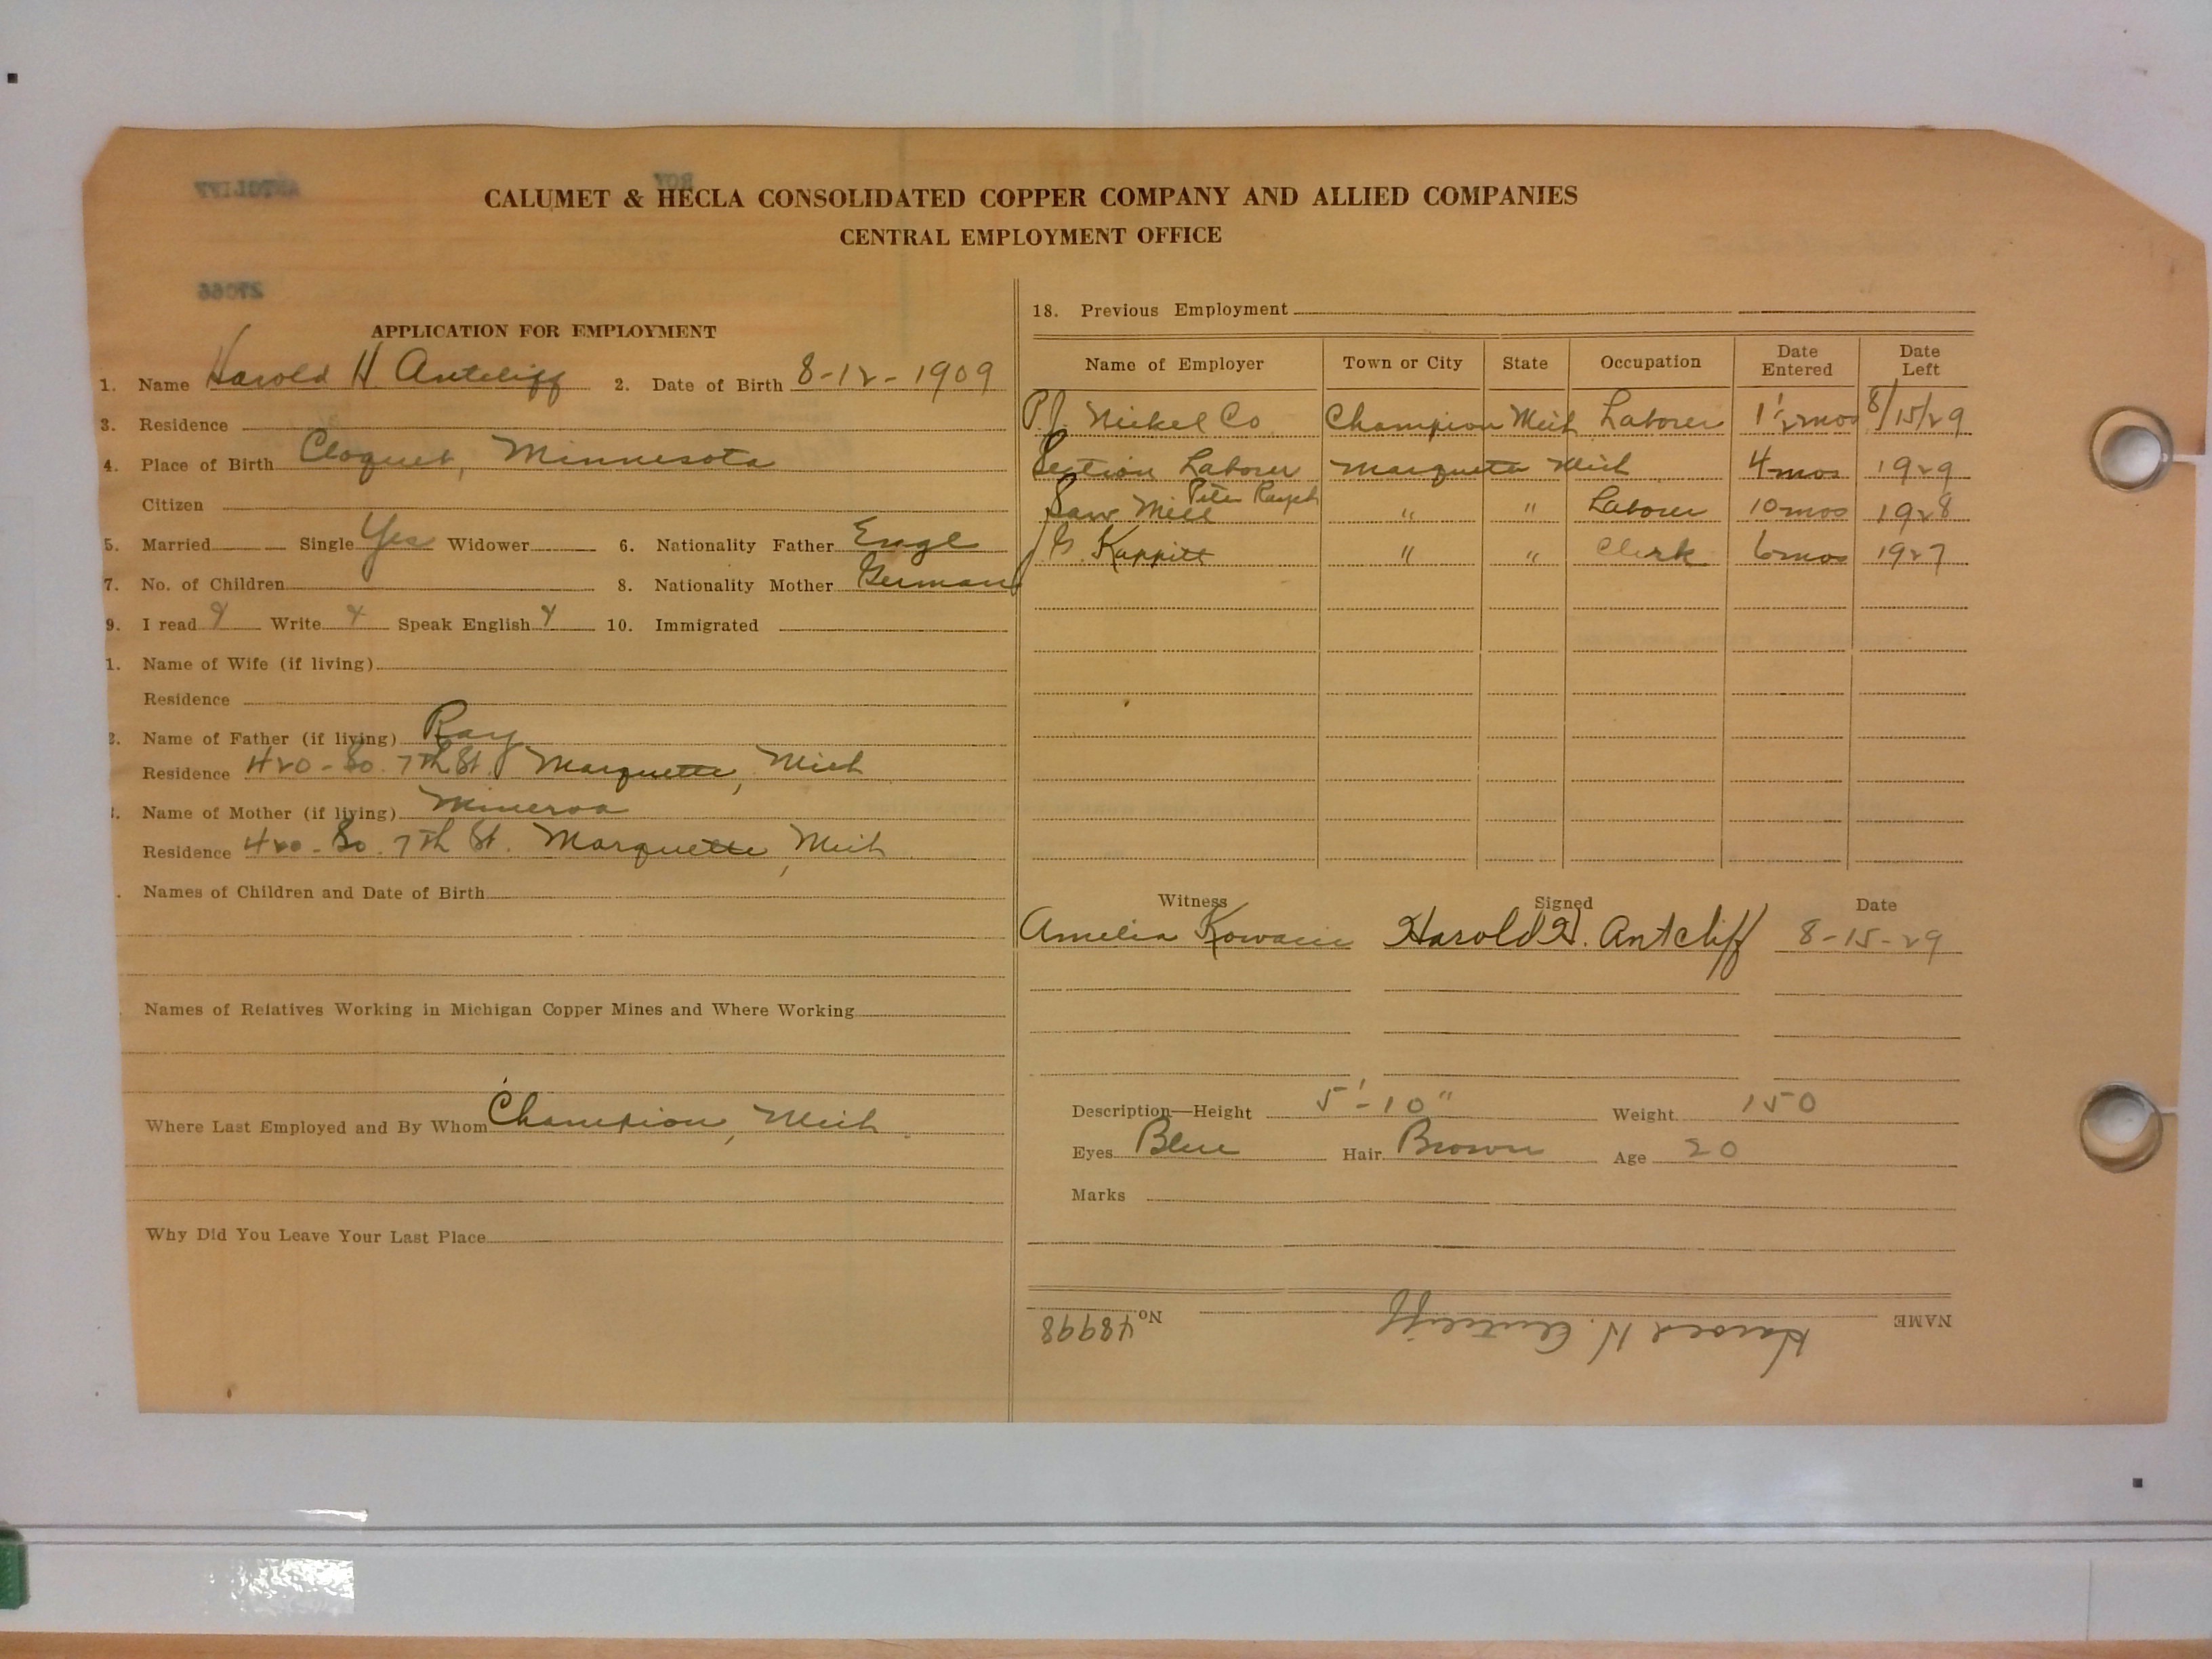 CALUMET & HECLA CONSOLIDATED COPPER COMPANY AND ALLIED COMPANIES
CENTRAL EMPLOYMENT OFFICE
APPLICATION FOR EMPLOYMENT
1. Name Harold H Antcliff 2. Date of Birth 8-12-1909
3. Residence
4. Place of Birth Cloquet, Minnesota
Citizen
5. Married Single Yes Widower 6. Nationality Father Engl
7. No. of Children 8. Nationality Mother German
9. I read Y Write Y Speak English Y 10. Immigrated
1. Name of Wife (if living)
Residence
2. Name of Father (if living) Ray
Residence 420-So. 7th St. Marquette, Mich
Name of Mother (if living) Minerva
Residence 420-So. 7th St. Marquette, Mich
Names of Children and Date of Birth
Names of Relatives Working in Michigan Copper Mines and Where Working
Where Last Employed and By Whom Champion, Mich.
Why Did You Leave Your Last Place
18. Previous Employment
Name of Employer Town or City State Occupation Date Entered Date Left
P.J. Nickel Co Champion Mich Laborer 1 1/2 mos 8/15/29
Section Laborer Marquette Mich 4 mos 1929
Saw Mill Peter " " Laborer 10 mos 1928
" " Clerk 6 mos 1927
Witness Signed Date
Amelia Harold H. Antcliff 8-15-29
Description—Height 5'-10" Weight 150
Eyes Blue Hair Brown Age 20
Marks
NAME Harold H. Antcliff No. 48998